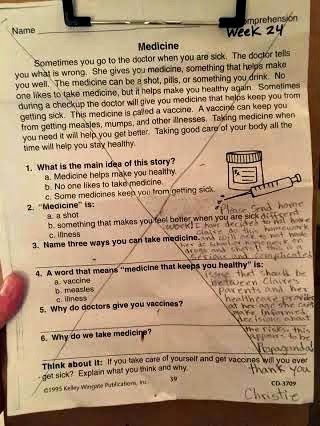 Name
omprehension
Week 24
Medicine
Sometimes you go to the doctor when you are sick. The doctor tells
you what is wrong. She gives you medicine, something that helps make
you well. The medicine can be a shot, pills, or something you drink. No
one likes to take medicine, but it helps make you healthy again. Sometimes
during a checkup the doctor will give you medicine that helps keep you from
getting sick. This medicine is called a vaccine. A vaccine can keep you
from getting measles, mumps, and other illnesses. Taking medicine when
you need it will help you get better. Taking good care of your body all the
time will help you stay healthy.
1. What is the main idea of this story?
a. Medicine helps make you healthy.
b. No one likes to take medicine.
c. Some medicines keep you from getting sick.
2. "Medicine" is:
a. a shot
b. something that makes you feel better when you are sick
c. illness
Please send home
different
work! I have decided to not have
Claire do this homework
3. Name three ways you can take medicine.
drugs
serious and complicated
4. A word that means "medicine that keeps you healthy" is:
a. vaccine
b. measles
c. illness
issue that should be
between Claire's
Parents and her
healthcare provider
make informed
decisions about
5. Why do doctors give you vaccines?
the risks. this
appears to be
6. Why do we take medicine?
Propaganda!
Think about it: If you take care of yourself and get vaccines will you ever
get sick? Explain what you think and why.
thank you
©1995 Kelley Wingate Publications, Inc.
39
CD-3709
Christie